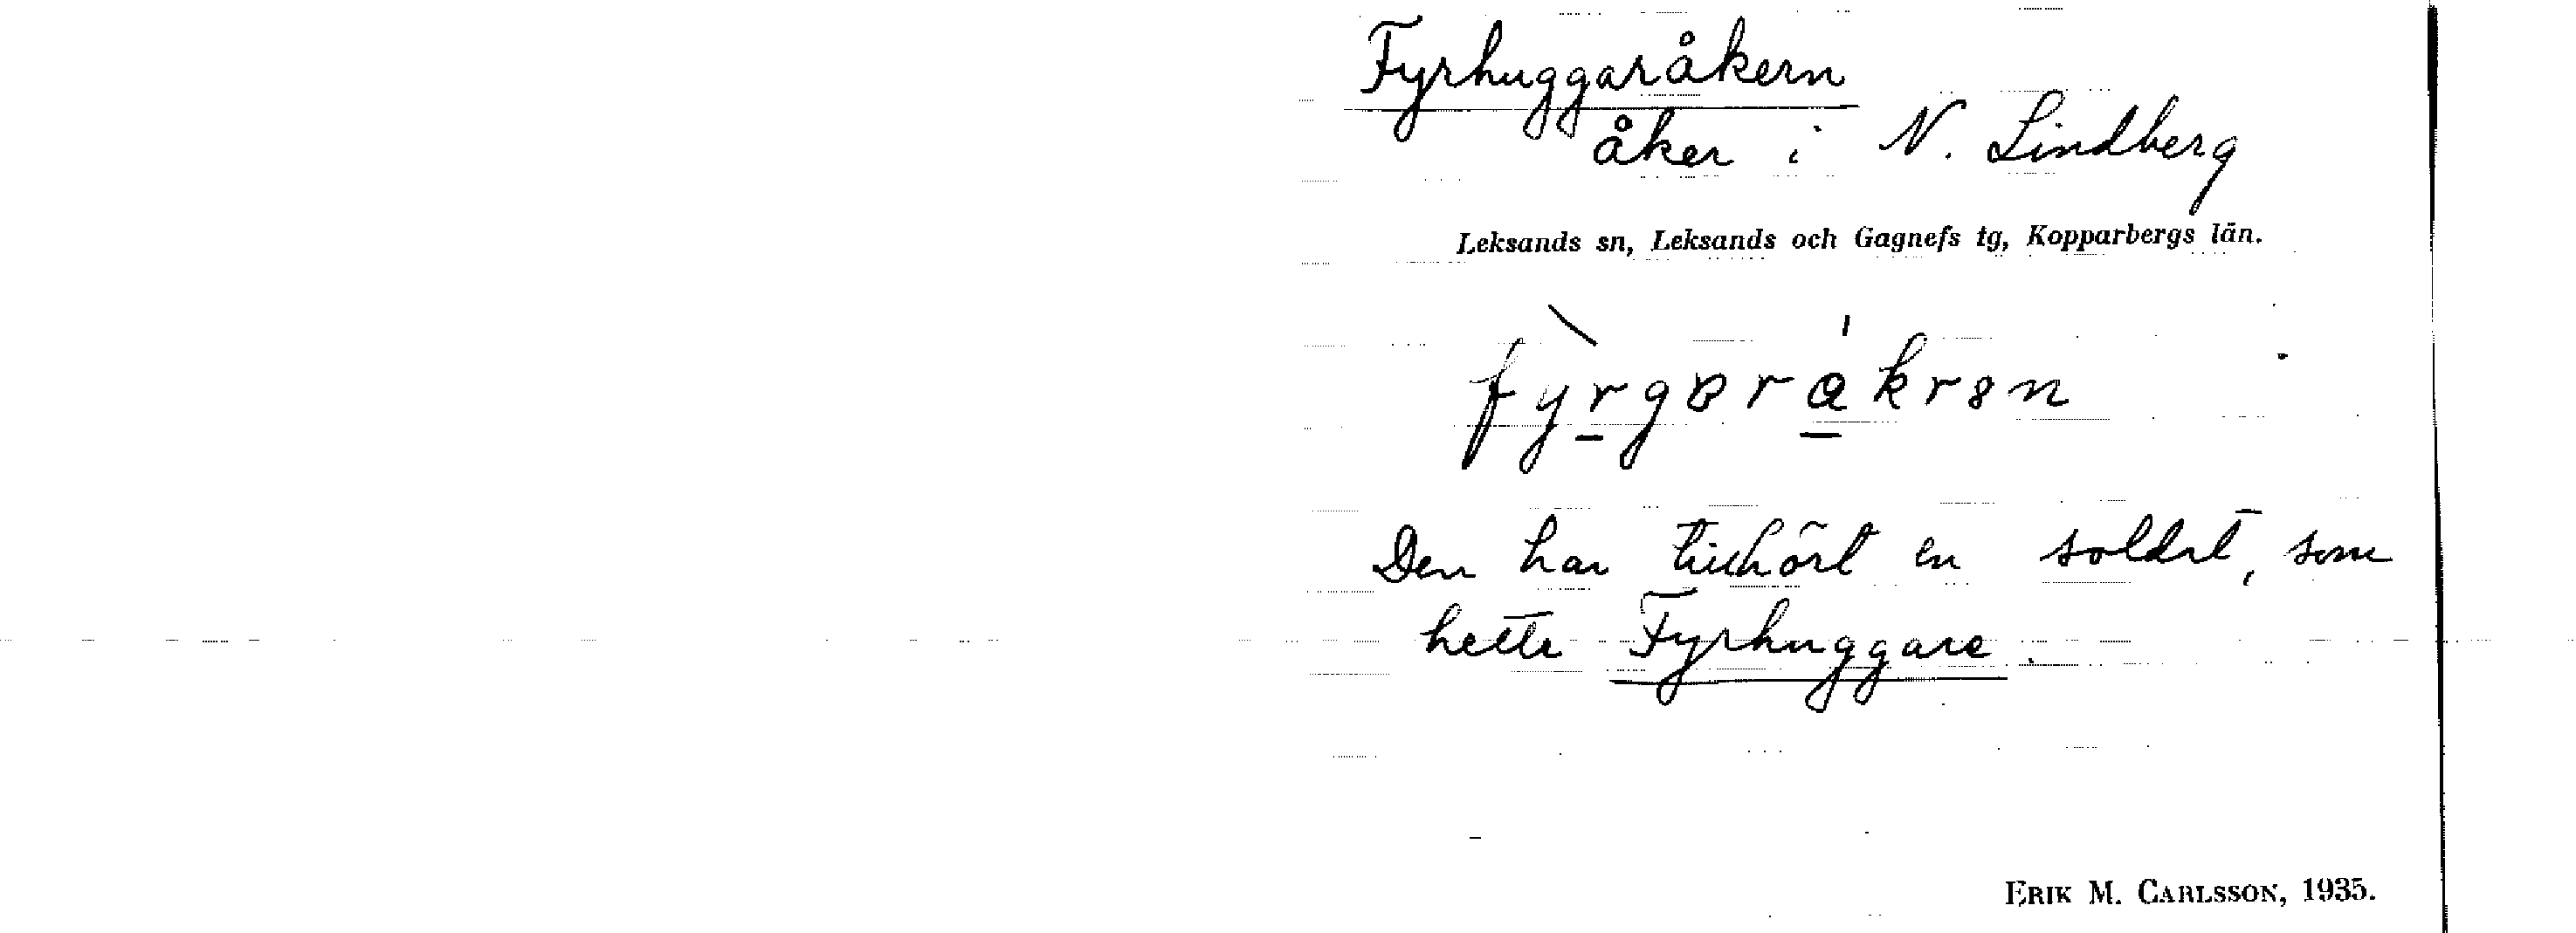 Fyrhuggaråkern
åker i N. Lindberg
Leksands sn, Leksands och Gagnefs tg, Kopparbergs län.
Den har tillhört en soldat, som
hette Fyrhuggare.
ERIK M. CARLSSON, 1935.